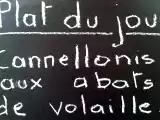 Plat du jou
Cannellonis
aux abats
de volaille